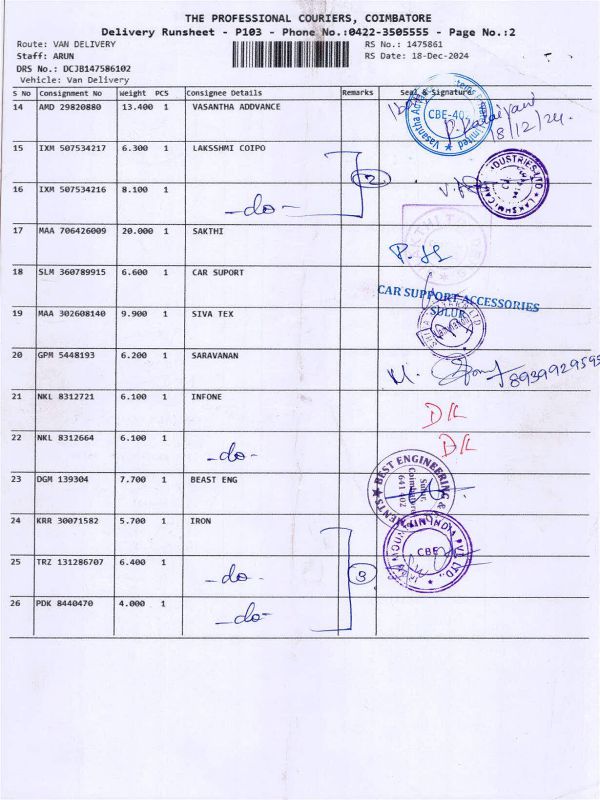 THE PROFESSIONAL COURIERS, COIMBATORE
Delivery Runsheet - P103 - Phone No.:0422-3505555 - Page No.:2
Route: VAN DELIVERY RS No.: 1475861
Staff: ARUN RS Date: 18-Dec-2024
DRS No.: DCJB147586102
Vehicle: Van Delivery
S No Consignment No Weight PCS Consignee Details Remarks Seal & Signature
14 AMD 29820880 13.400 1 VASANTHA ADDVANCE
CBE-402
18/12/24
15 IXM 507534217 6.300 1 LAKSSHMI COIPO
2
16 IXM 507534216 8.100 1
-do-
17 MAA 706426009 20.000 1 SAKTHI
18 SLM 360789915 6.600 1 CAR SUPORT
CAR SUPPORT ACCESSORIES
SULUR
19 MAA 302608140 9.900 1 SIVA TEX
20 GPM 5448193 6.200 1 SARAVANAN
8939929595
21 NKL 8312721 6.100 1 INFONE
D/L
22 NKL 8312664 6.100 1
-do- D/L
23 DGM 139304 7.700 1 BEAST ENG
BEST ENGINEERING &
Sulur,
Coimbatore
641 402
24 KRR 30071582 5.700 1 IRON
CBE
25 TRZ 131286707 6.400 1
-do- 3
26 PDK 8440470 4.000 1
-do-